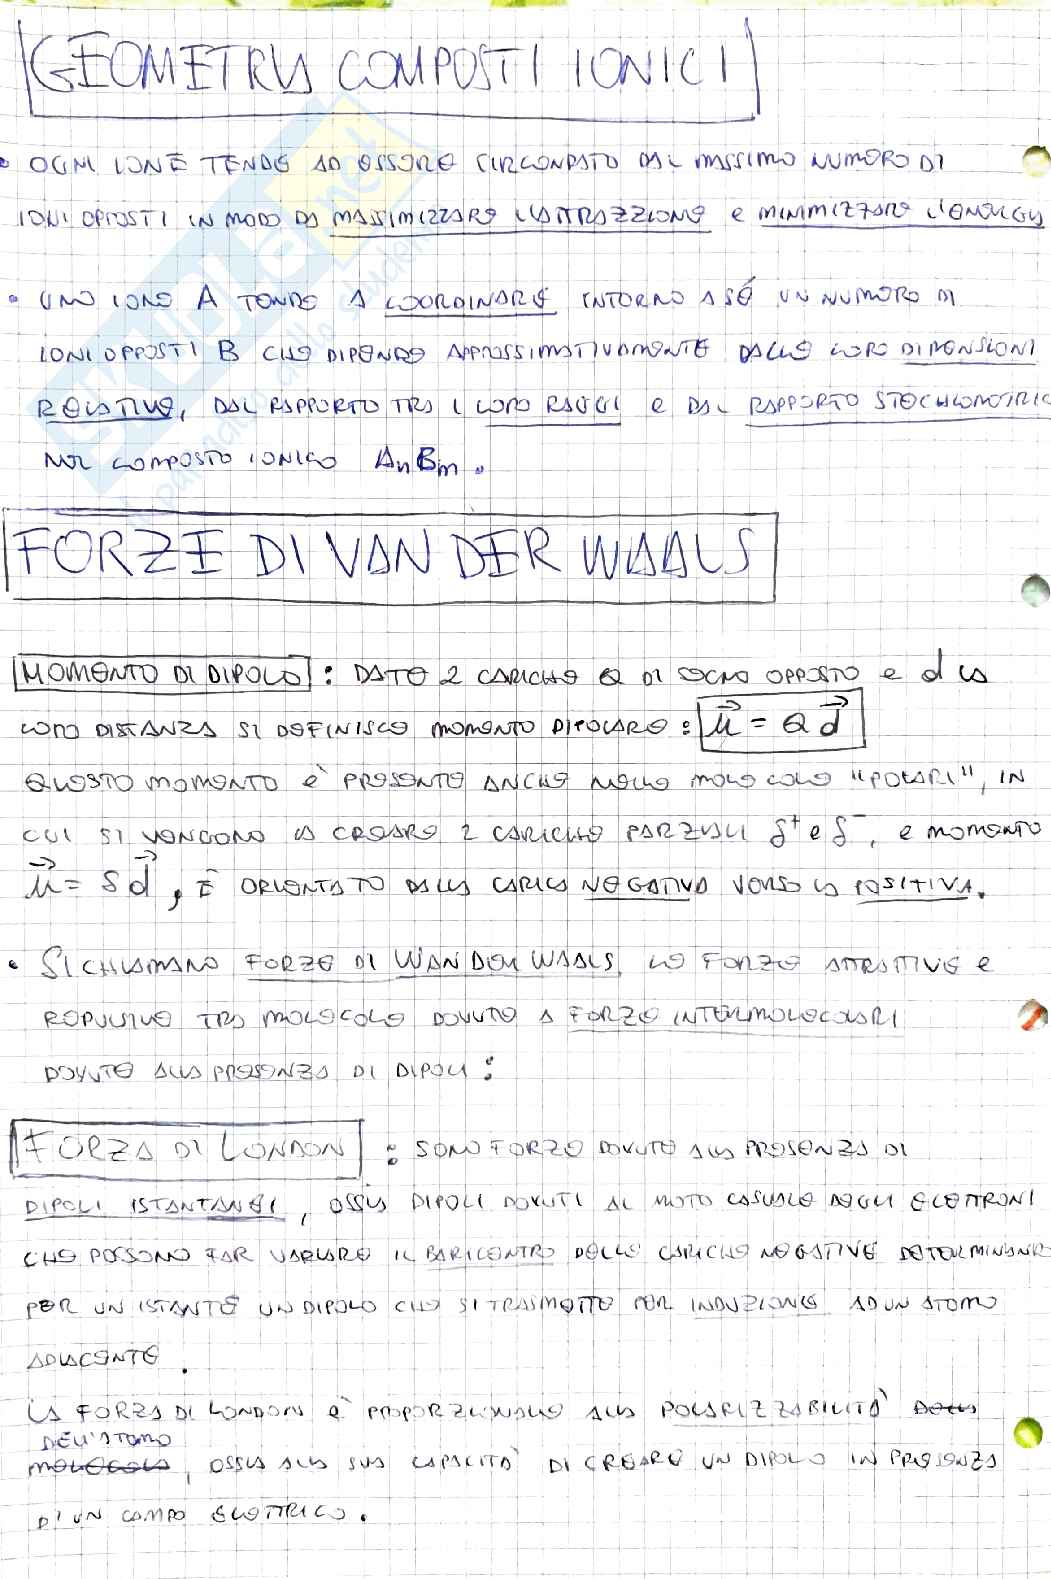 GEOMETRIA COMPOSTI IONICI
• OGNI IONE TENDE AD ESSERE CIRCONDATO DAL MASSIMO NUMERO DI
IONI OPPOSTI IN MODO DA MASSIMIZZARE L'ATTRAZZIONE E MINIMIZZARE L'ENERGIA
• UNO IONE A TENDE A COORDINARE INTORNO A SÉ UN NUMERO DI
IONI OPPOSTI B CHE DIPENDE APPROSSIMATIVAMENTE DALLE LORO DIMENSIONI
RELATIVE, DAL RAPPORTO TRA I LORO RAGGI E DAL RAPPORTO STECHIOMETRIC
NEL COMPOSTO IONICO AnBm.
FORZE DI VAN DER WAALS
MOMENTO DI DIPOLO : DATE 2 CARICHE Q DI SEGNO OPPOSTO E d LA
LORO DISTANZA SI DEFINISCE MOMENTO DIPOLARE : μ⃗ = Q d⃗
QUESTO MOMENTO È PRESENTE ANCHE NELLE MOLECOLE "POLARI", IN
CUI SI VENGONO A CREARE 2 CARICHE PARZIALI δ⁺ e δ⁻, E MOMENTO
μ⃗ = δ d⃗, È ORIENTATO DALLA CARICA NEGATIVA VERSO LA POSITIVA.
• SI CHIAMANO FORZE DI WAN DER WAALS LE FORZE ATTRATTIVE E
REPULSIVE TRA MOLECOLE DOVUTE A FORZE INTERMOLECOLARI
DOVUTE ALLA PRESENZA DI DIPOLI :
FORZA DI LONDON : SONO FORZE DOVUTE ALLA PRESENZA DI
DIPOLI ISTANTANEI, OSSIA DIPOLI DOVUTI AL MOTO CASUALE DEGLI ELETTRONI
CHE POSSONO FAR VARIARE IL BARICENTRO DELLE CARICHE NEGATIVE DETERMINANDO
PER UN ISTANTE UN DIPOLO CHE SI TRASMETTE PER INDUZIONE AD UN ATOMO
ADIACENTE.
LA FORZA DI LONDON È PROPORZIONALE ALLA POLARIZZABILITÀ DELLA
DELL'ATOMO
MOLECOLA, OSSIA ALLA SUA CAPACITÀ DI CREARE UN DIPOLO IN PRESENZA
D'UN CAMPO ELETTRICO.